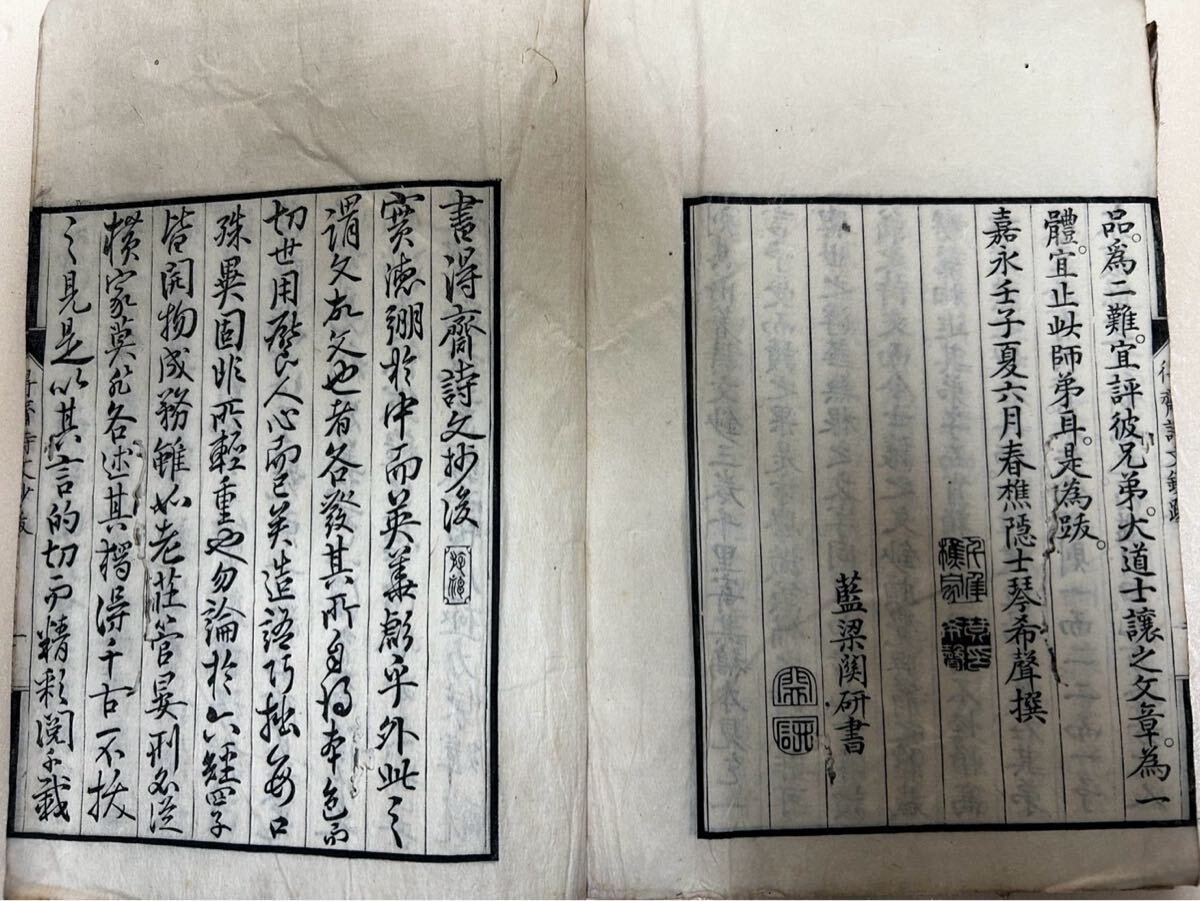 品。爲二難。宜評彼兄弟。大道士讓之文章。為一
體。宜止此師弟耳。是為跋。
嘉永壬子夏六月春樵隱士琴希聲撰
藍梁関研書
書得齋詩文抄後
實德弸於中而英華彪乎外此之
謂文故文也者各發其所自得本色而
切世用壓人心而已矣造語巧拙每口
殊異固非所輕重也勿論於六經四子
皆開物成務雖如老莊管晏刑名從
橫家莫非各述其獨得千古一不拔
之見是以其言的切而精彩閱千載
得齋詩文鈔跋
得齋詩文鈔跋
一